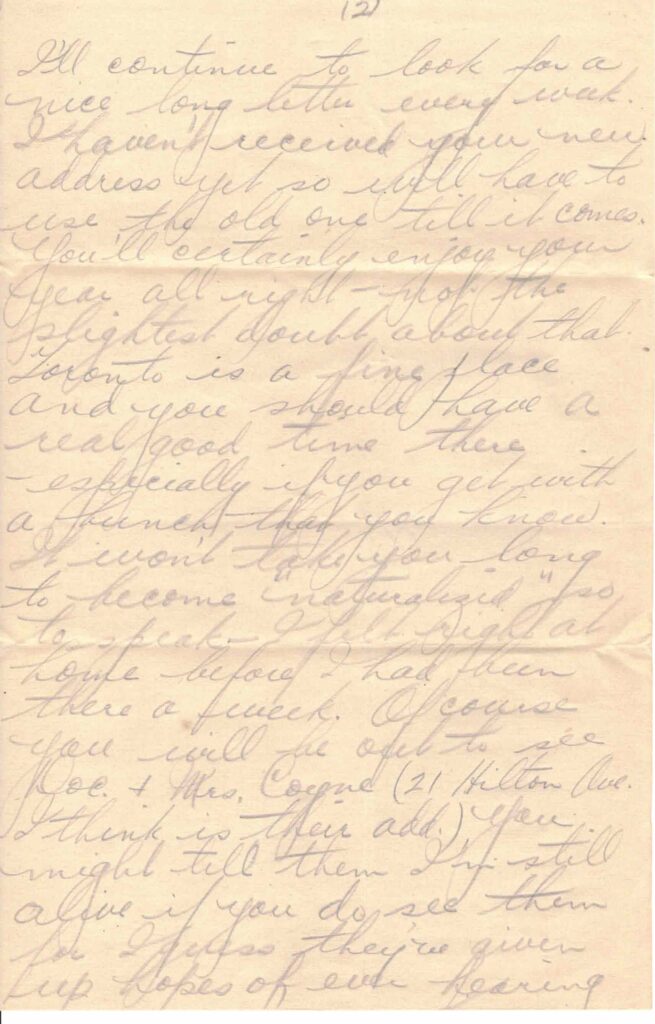 (2)
I'll continue to look for a
nice long letter every week.
I haven't received your new
address yet so will have to
use the old one till it comes.
You'll certainly enjoy your
year all right - not the
slightest doubt about that.
Toronto is a fine place
and you should have a
real good time there
- especially if you get with
a bunch that you know.
It won't take you long
to become "naturalized" so
to speak - I felt right at
home before I had been
there a week. Of course
you will be out to see
Doc. + Mrs. Coyne (21 Hilton Ave.
I think is their add.) You
might tell them I'm still
alive if you do see them
for I guess they've given
up hopes of ever hearing